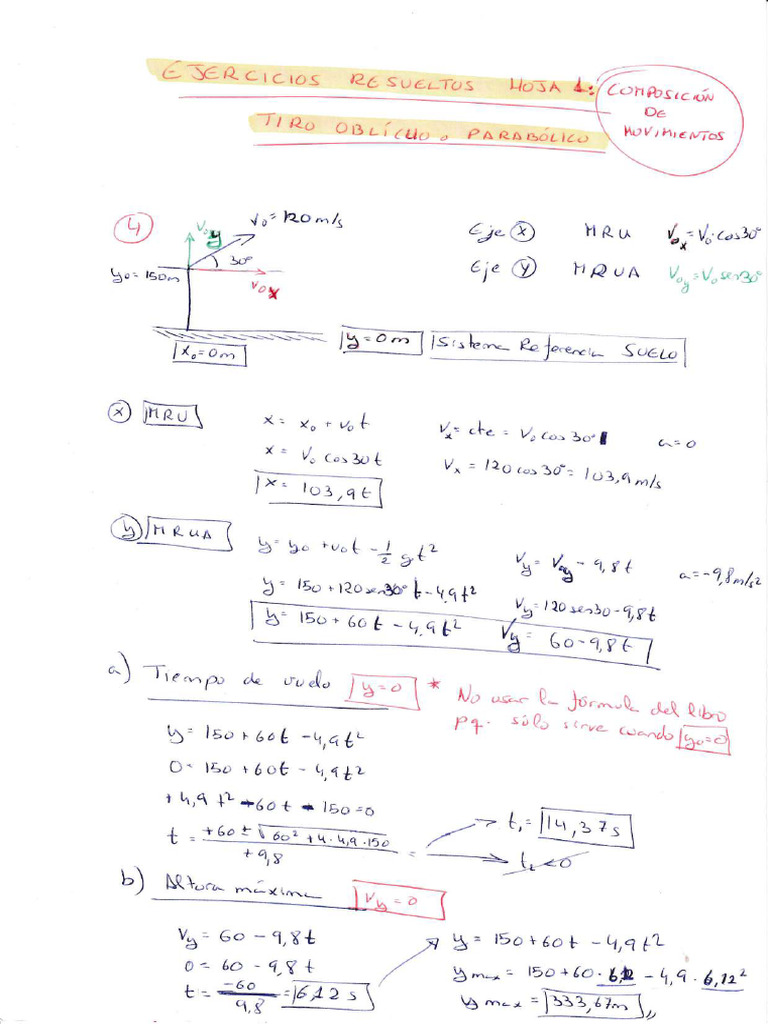 EJERCICIOS RESUELTOS HOJA 1: COMPOSICIÓN DE MOVIMIENTOS
TIRO OBLÍCUO o PARABÓLICO
4
V₀y
V₀ = 120 m/s
30°
y₀ = 150m
V₀x
Eje x MRU V₀x = V₀·cos30°
Eje y MRUA V₀y = V₀ sen30°
x₀ = 0m
y = 0m Sistema Referencia SUELO
x MRU
x = x₀ + v₀t Vx = cte = V₀ cos30° a = 0
x = V₀ cos30t Vx = 120cos30° = 103,9m/s
x = 103,9t
y MRUA
y = y₀ + v₀t - 1/2 gt² Vy = V₀y - 9,8t a = -9,8m/s²
y = 150 + 120sen30°t - 4,9t² Vy = 120sen30 - 9,8t
y = 150 + 60t - 4,9t² Vy = 60 - 9,8t
a) Tiempo de vuelo y = 0 * No usar la fórmula del libro
pq. sólo sirve cuando y₀ = 0
y = 150 + 60t - 4,9t²
0 = 150 + 60t - 4,9t²
+4,9t² - 60t - 150 = 0
t = (+60 ± √(60² + 4·4,9·150)) / +9,8 = t₁ = 14,37s
t₂ < 0
b) Altura máxima Vy = 0
Vy = 60 - 9,8t
0 = 60 - 9,8t
t = -60 / 9,8 = 6,12 s
y = 150 + 60t - 4,9t²
y max = 150 + 60·6,12 - 4,9·6,12²
y max = 333,67m